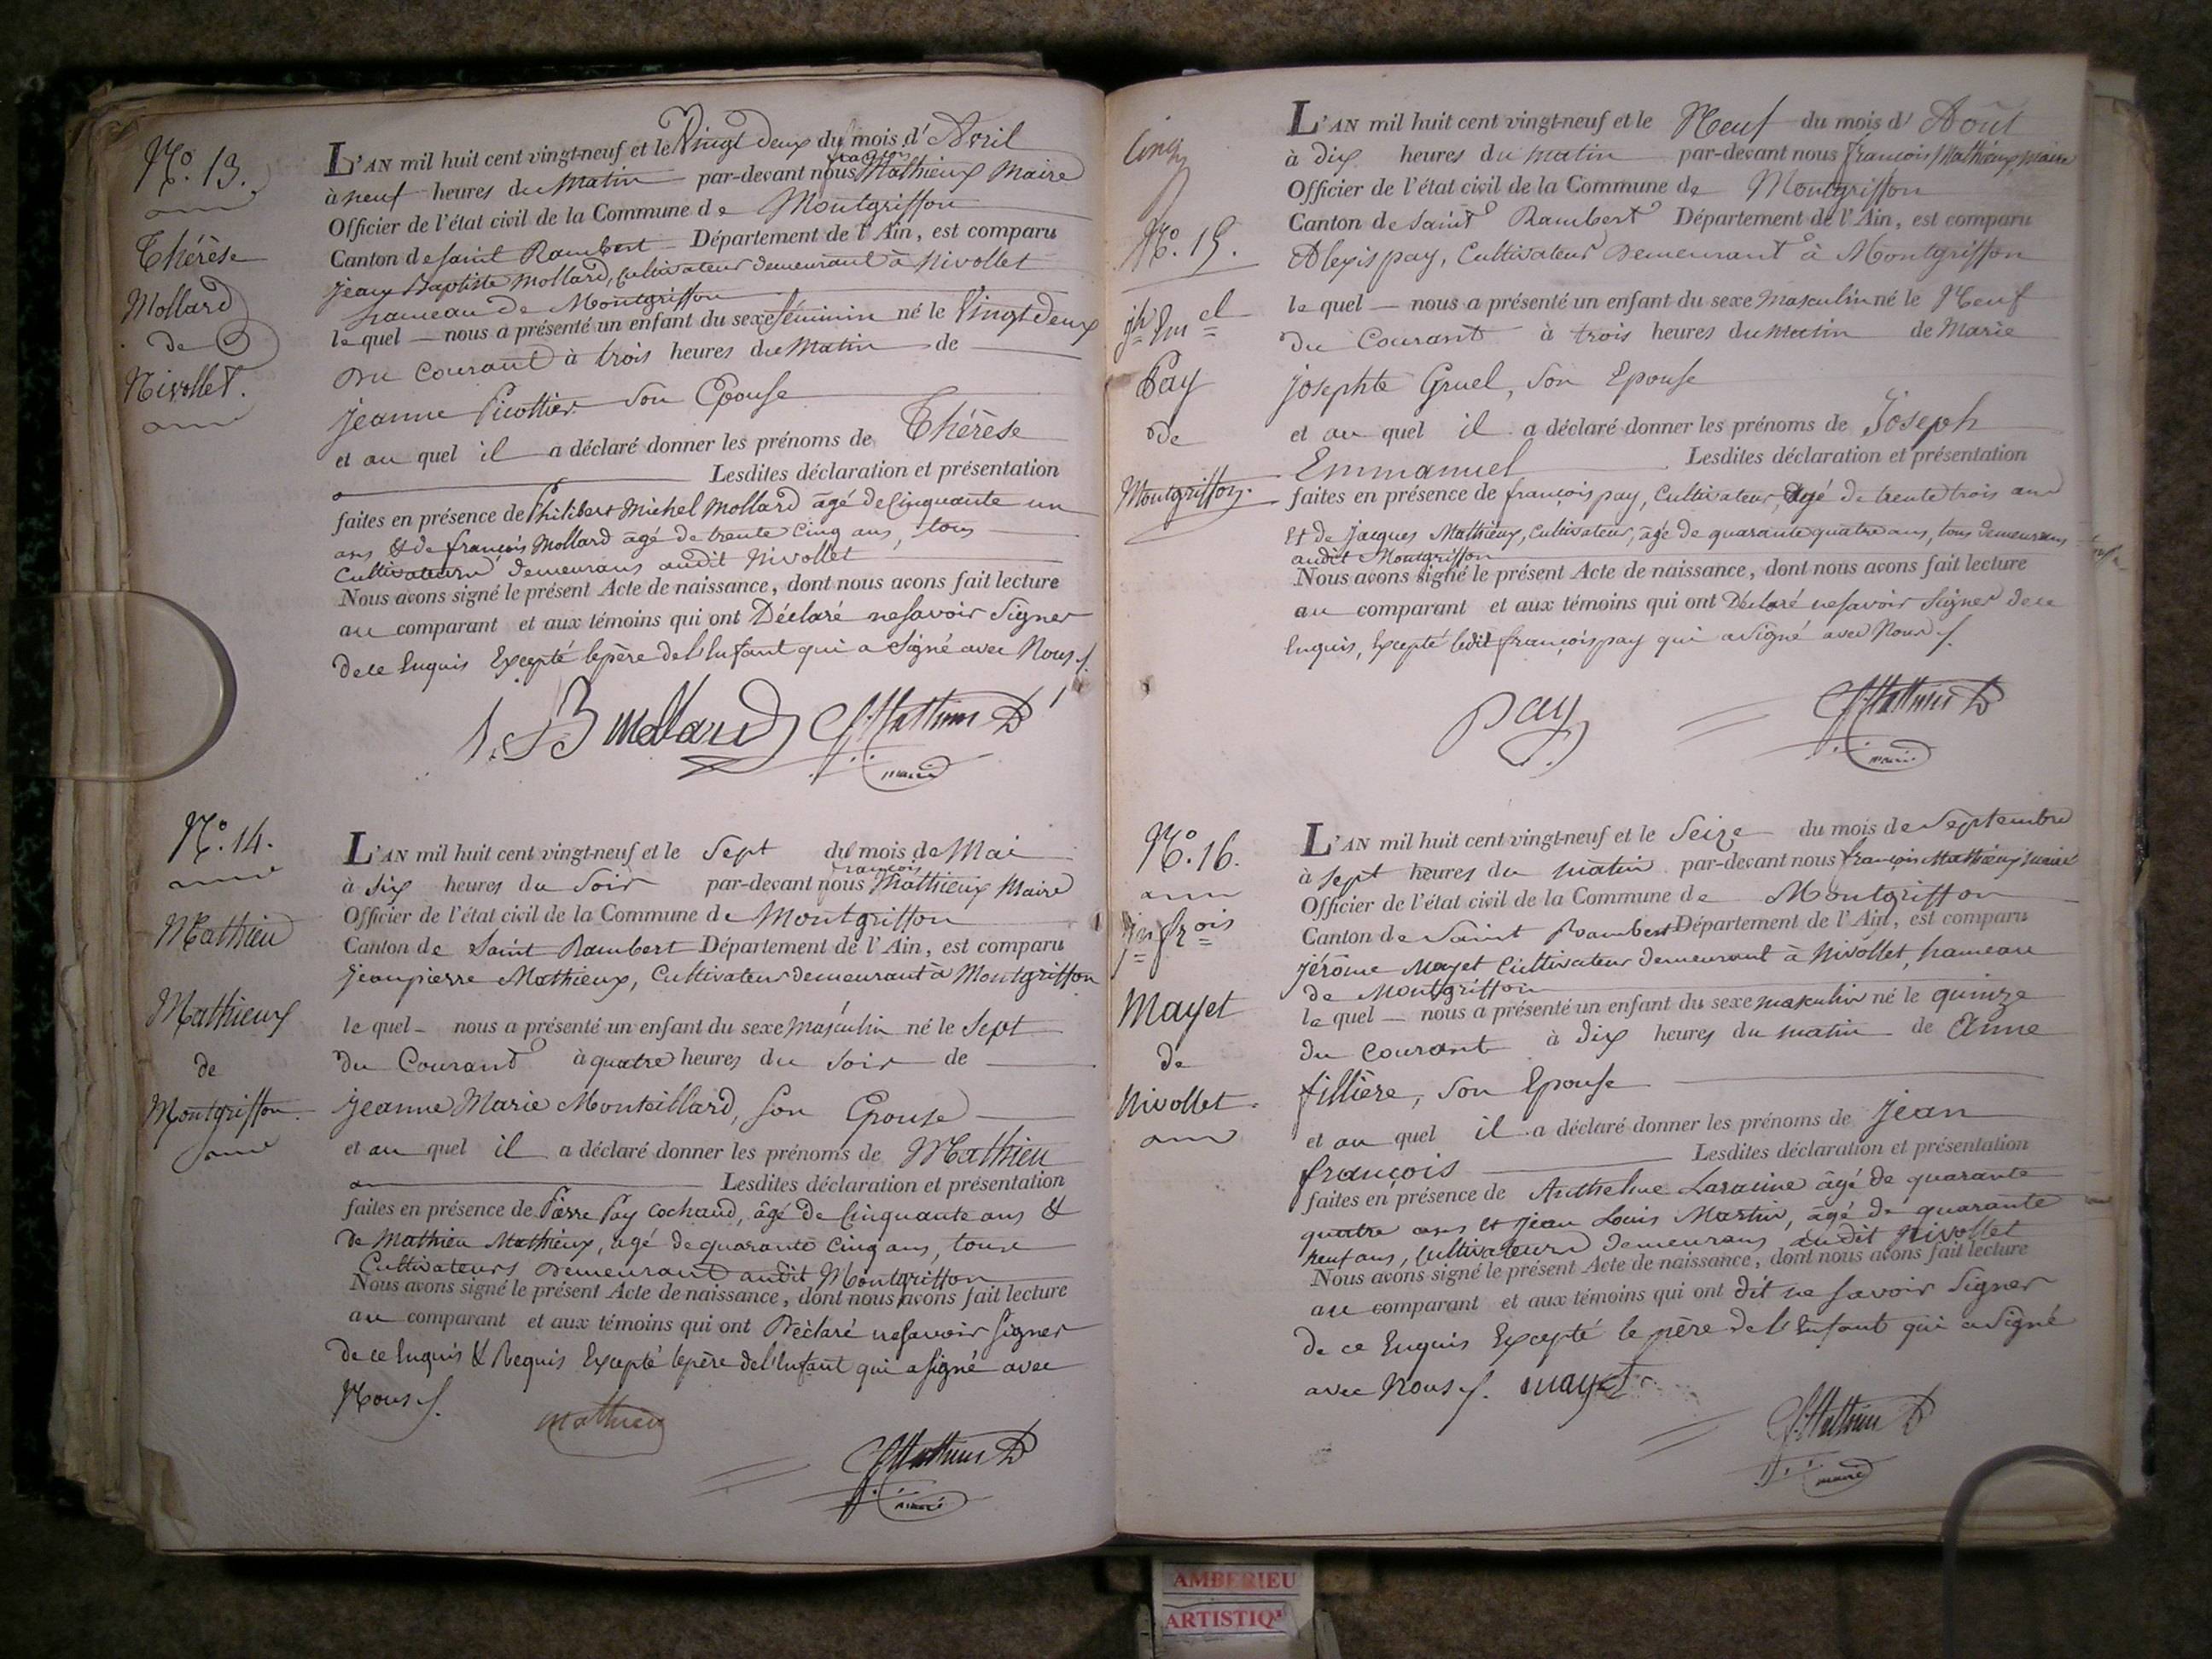 N.° 13.
Thérèse
Mollard
de
Nivollet.
L'AN mil huit cent vingt-neuf et le Vingt deux du mois d'Avril
à neuf heures du Matin par-devant nous françois Mathieux Maire
Officier de l'état civil de la Commune de Montgriffon
Canton de saint Rambert Département de l'Ain, est comparu
jean Baptiste Mollard, Cultivateur demeurant à Nivollet
hameau de Montgriffon
lequel nous a présenté un enfant du sexe féminin né le Vingt Deux
Du Courant à trois heures du Matin de
jeanne Picottier son Epouse
et au quel il a déclaré donner les prénoms de Thérèse
Lesdites déclaration et présentation
faites en présence de Philibert Michel Mollard âgé de Cinquante un
ans & de françois Mollard âgé de trente Cinq ans, tous
Cultivateurs demeurans audit Nivollet
Nous avons signé le présent Acte de naissance, dont nous avons fait lecture
au comparant et aux témoins qui ont Déclaré ne savoir Signer
de ce Enquis Excepté le père de l'Enfant qui a Signé avec Nous
J. B mollard f. Mathieux
maire
N.° 14.
Mathieu
Mathieux
de
Montgriffon
L'AN mil huit cent vingt-neuf et le Sept du mois de Mai
à Six heures du Soir par-devant nous françois Mathieux Maire
Officier de l'état civil de la Commune de Montgriffon
Canton de Saint Rambert Département de l'Ain, est comparu
jean pierre Mathieux, Cultivateur demeurant à Montgriffon
le quel nous a présenté un enfant du sexe masculin né le Sept
du Courant à quatre heures du Soir de
Jeanne Marie Montaillard, son Epouse
et au quel il a déclaré donner les prénoms de Mathieu
Lesdites déclaration et présentation
faites en présence de Pierre Pay Cochaud, âgé de Cinquante ans &
de Mathieu Mathieux, agé de quarante Cinq ans, tous
Cultivateurs Demeurant audit Montgriffon
Nous avons signé le présent Acte de naissance, dont nous avons fait lecture
au comparant et aux témoins qui ont Déclaré ne savoir signer
de ce Enquis & Requis Excepté le père de l'Enfant qui a signé avec
Nous
mathieux
f. Mathieux
maire
Cinq
N.° 15.
jh Em el
Pay
de
Montgriffon.
L'AN mil huit cent vingt-neuf et le Neuf du mois d'Août
à Dix heures du matin par-devant nous françois Mathieux, Maire
Officier de l'état civil de la Commune de Montgriffon
Canton de Saint Rambert Département de l'Ain, est comparu
Alexis pay, Cultivateur Demeurant à Montgriffon
le quel nous a présenté un enfant du sexe Masculin né le Neuf
du Courant à trois heures du Matin de Marie
josephte Gruel, son Epouse
et au quel il a déclaré donner les prénoms de Joseph
Emmanuel Lesdites déclaration et présentation
faites en présence de françois pay, Cultivateur, Agé de trente trois ans
Et de Jacques Mathieux, Cultivateur, âgé de quarante quatre ans, tous demeurans
audit Montgriffon
Nous avons signé le présent Acte de naissance, dont nous avons fait lecture
au comparant et aux témoins qui ont Déclaré ne savoir Signer de ce
Enquis, Excepté ledit françois pay qui a Signé avec Nous
pay f. Mathieux
maire
N.° 16.
jn frois
Mayet
de
Nivollet.
L'AN mil huit cent vingt-neuf et le Seize du mois de Septembre
à sept heures du matin par-devant nous françois Mathieux, maire
Officier de l'état civil de la Commune de Montgriffon
Canton de Saint Rambert Département de l'Ain, est comparu
jérôme Mayet Cultivateur demeurant à Nivollet, hameau
de Montgriffon
le quel nous a présenté un enfant du sexe masculin né le quinze
du courant à dix heures du matin de Anne
fillière, son Epouse
et au quel il a déclaré donner les prénoms de jean
françois Lesdites déclaration et présentation
faites en présence de Anthelme Laracine âgé de quarante
quatre ans et jean Louis Martin, âgé de quarante
neuf ans, Cultivateurs demeurans audit Nivollet
Nous avons signé le présent Acte de naissance, dont nous avons fait lecture
au comparant et aux témoins qui ont dit ne savoir Signer
de ce Enquis Excepté le père de l'Enfant qui a Signé
avec Nous mayet
f. Mathieux
maire
AMBERIEU
ARTISTIQ